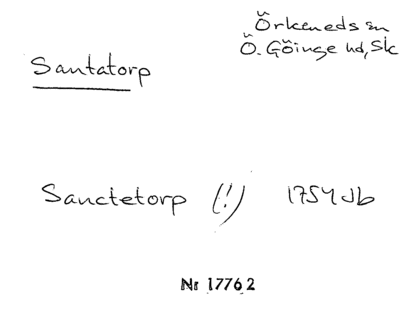 Örkeneds sn
Ö. Göinge hd, Sk
Santatorp
Sanctetorp (!) 1754 Jb
Nr 17762